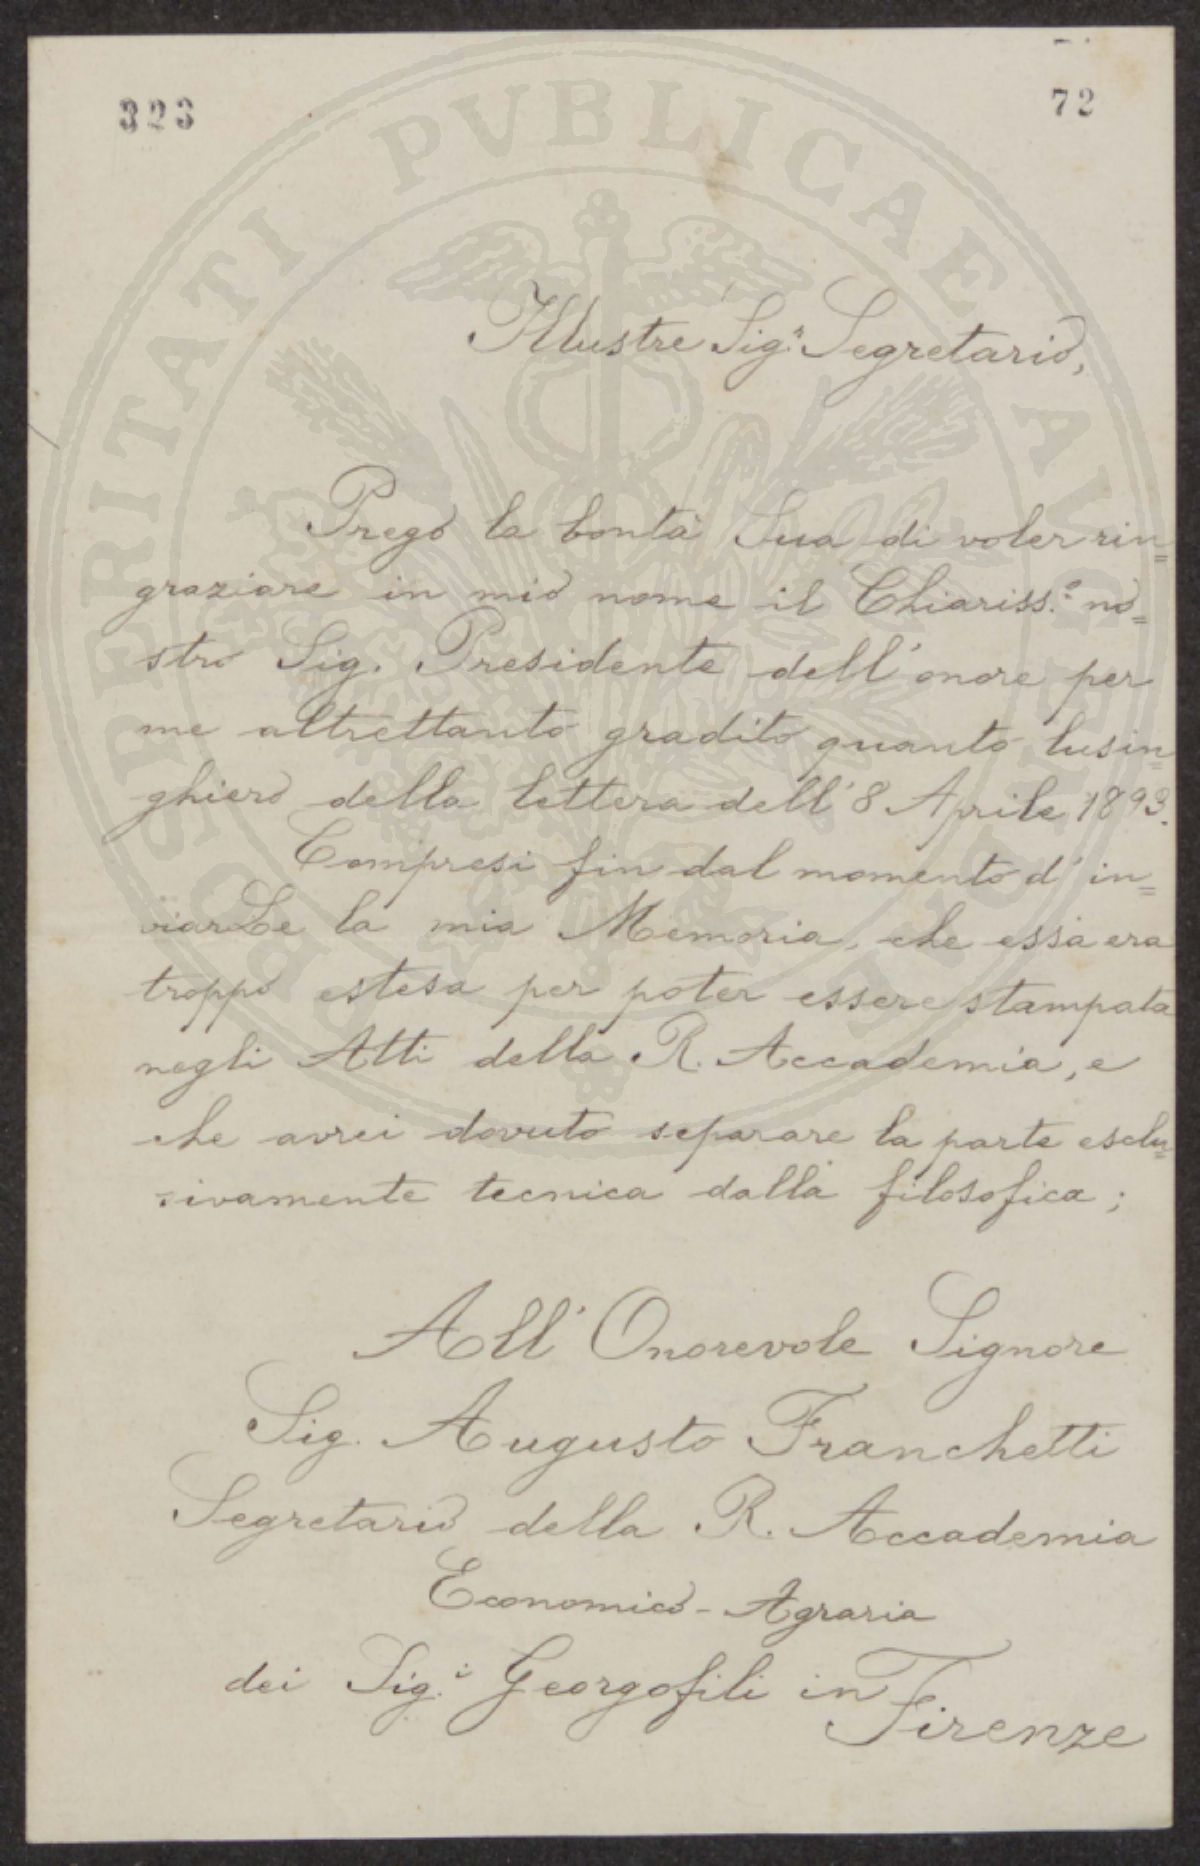 323
72
PROSPERITATI PVBLICAE AVGENDAE
Illustre Sig.r Segretario,
Prego la bontà Sua di voler rin=
graziare in mio nome il Chiariss.o no=
stro Sig. Presidente dell'onore per
me altrettanto gradito quanto lusin=
ghiero della lettera dell'8 Aprile 1893.
Compresi fin dal momento d'in=
viarLe la mia Memoria, che essa era
troppo estesa per poter essere stampata
negli Atti della R. Accademia, e
che avrei dovuto separare la parte esclu=
sivamente tecnica dalla filosofica;
All'Onorevole Signore
Sig. Augusto Franchetti
Segretario della R. Accademia
Economico-Agraria
dei Sig.i Georgofili in
Firenze